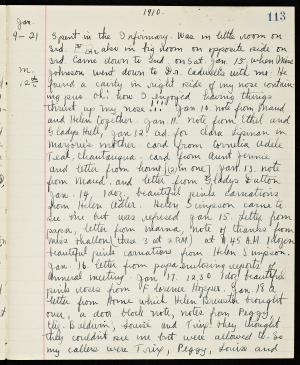 1910.
113
Jan.
9-21
Spent in the Infirmary. Was in little room on
3rd. also in big room on opposite side on
3rd. Came down to 2nd. on Sat Jan. 15. when Miss
M.
12th
Johnson went down to Dr. Cadwell's with me. He
found a cavity in right side of my nose contain
ing pus. Oh! how I enjoyed having things
thrust up my nose!!! Jan 10. note from Maud
and Helen together. Jan 11. note from Ethel and
Gladys Hill, Jan 12. ad. for Clara
Marjorie's mother card from Cornelia Adele
Teal, Chautauqua. card from Aunt Jennie
and letter from home (2 in one) Jan. 13. note
from Maud. and letter from Gladys Dalton
Jan. 14. 1 doz. beautiful pink carnations
from Helen Adler. Helen Simpson came to
see me but was refused. Jan 15. letter from
papa, letter from mamma, note of thanks from
Miss Thallon (there 3 at 2 PM) at 11.45 A.M. 1 dozen
beautiful pink carnations from Helen Simpson.
Jan. 16 letter from papa enclosing report of
annual meeting Jan 17. 12.30 1 doz. beautiful
pink roses from Florence Hopper. Jan. 18 a
letter from Home which Helen Brewster brought
over, a door block note, notes from Peggy,
Eliz. Baldwin, Louise and Trix. They thought
they couldn't see me but were allowed to. So
my callers were Trix, Peggy, Louise and